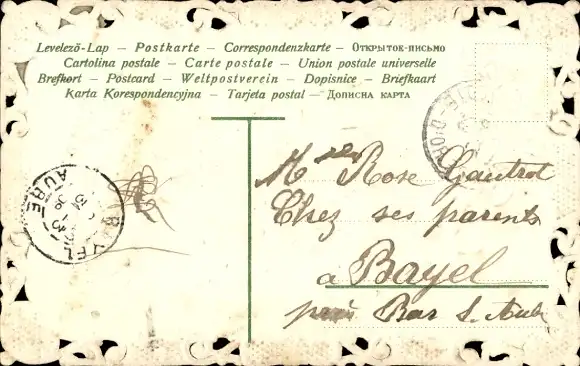 Levelező-Lap – Postkarte – Correspondenzkarte – Открыток-письмо
Cartolina postale – Carte postale – Union postale universelle
Brefkort – Postcard – Weltpostverein – Dopisnice – Briefkaart
Karta Korespondencyjna – Tarjeta postal – Дописна карта
Rose Gautrot
Chez ses parents
à Bayel
près Bar s. Aube
BAYEL
AUBE